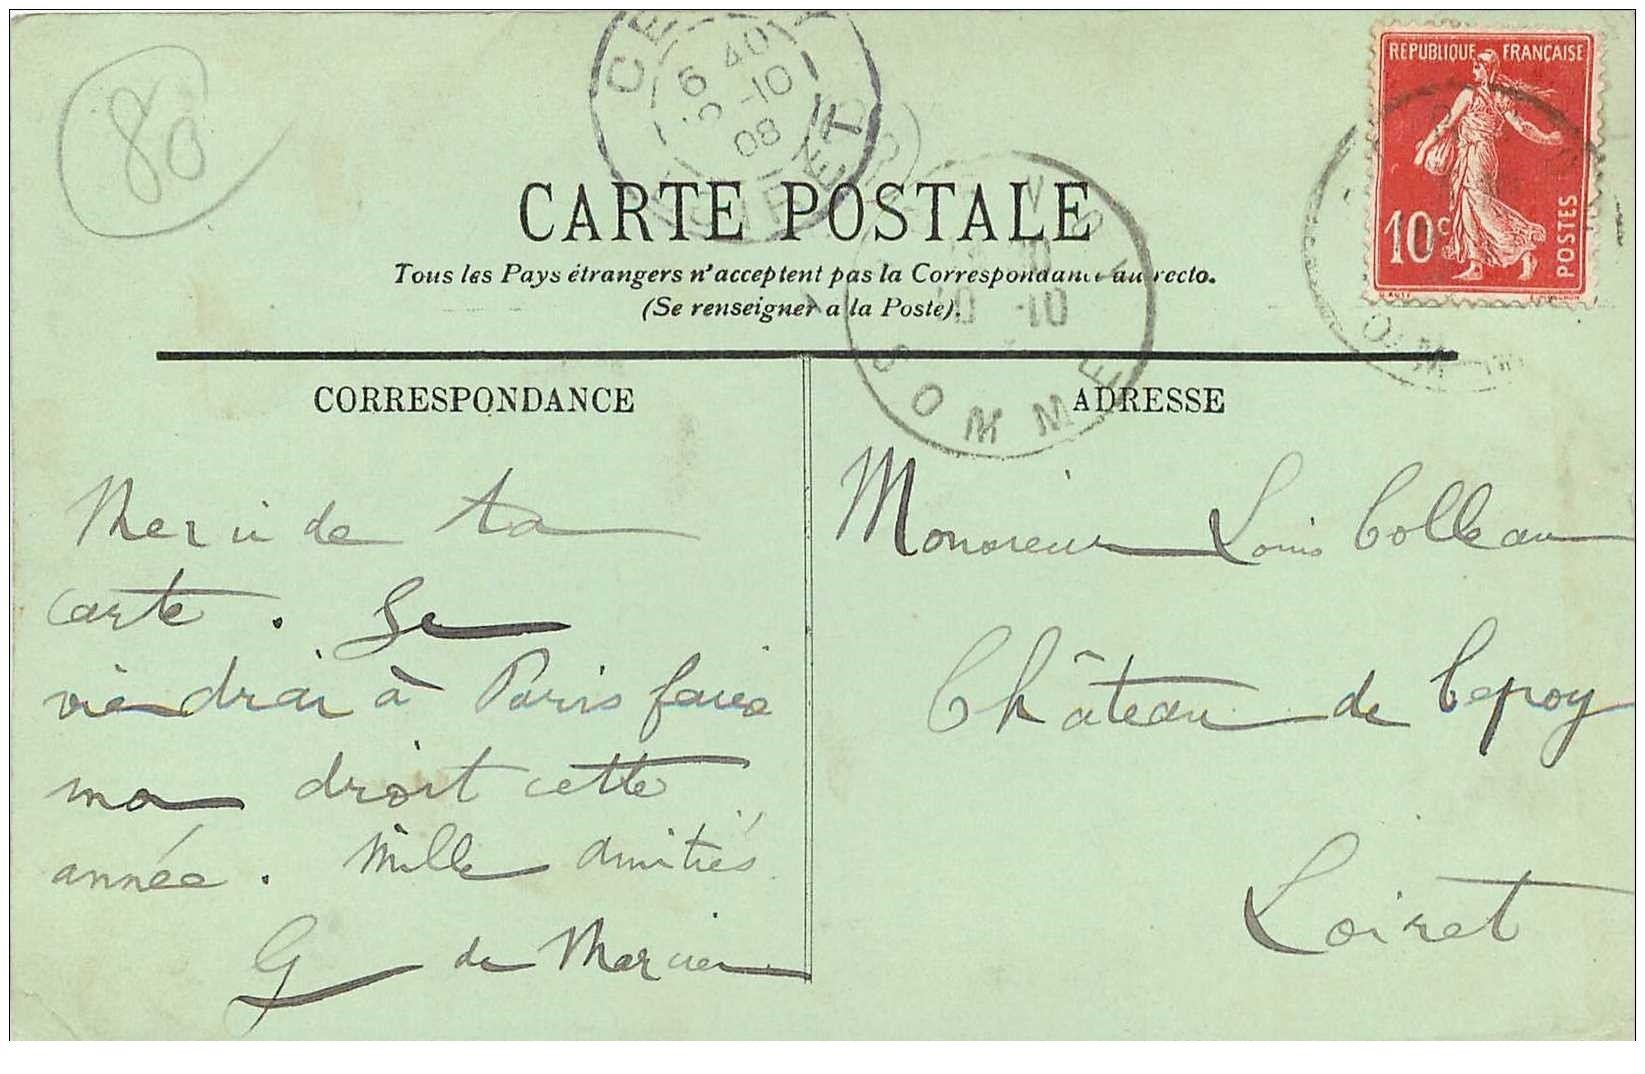 80
6 40
-10
08
RÉPUBLIQUE FRANÇAISE
10c
POSTES
CARTE POSTALE
Tous les Pays étrangers n'acceptent pas la Correspondance au recto.
(Se renseigner a la Poste).
10 -10
SOMME
CORRESPONDANCE
Merci de ta
carte. Je
viendrai à Paris faire
ma droit cette
année. Mille amitiés
G de
ADRESSE
Monsieur Louis Colleau
Château de Cepoy
Loiret